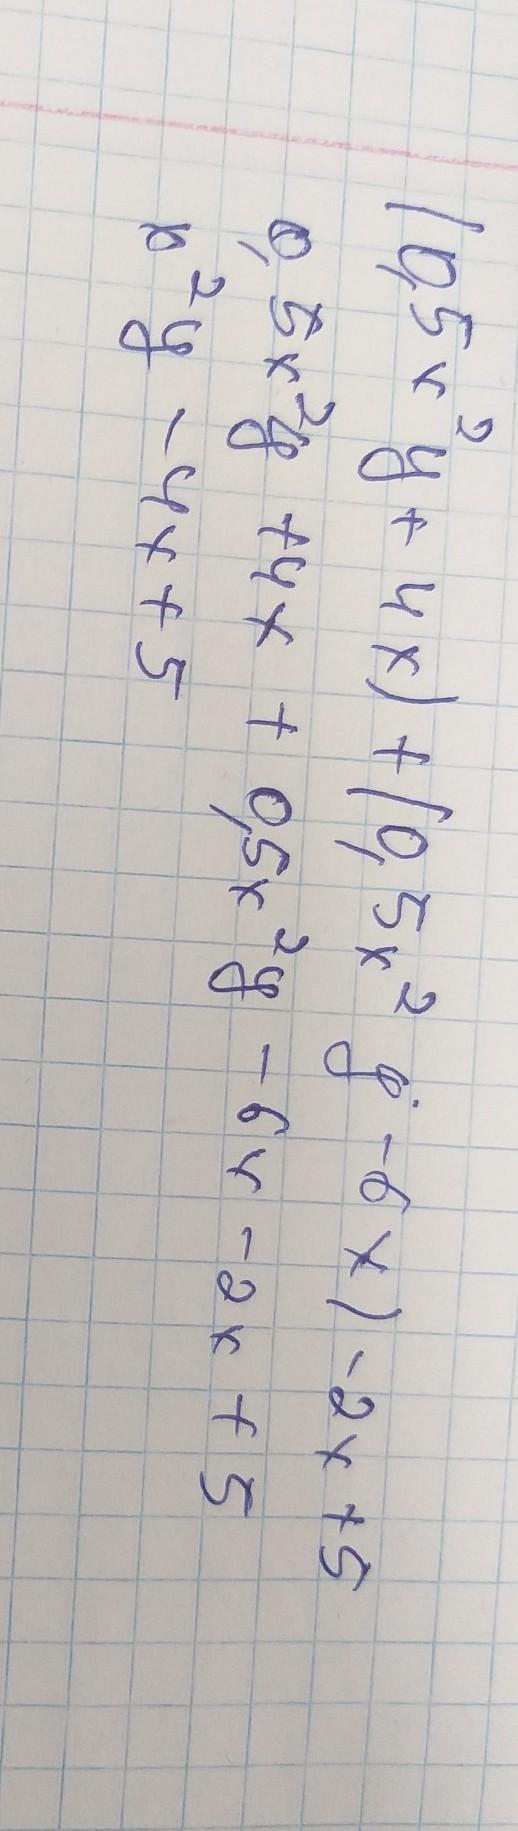 (0,5x²y + 4x) + (0,5x²y - 6x) - 2x + 5
0,5x²y + 4x + 0,5x²y - 6x - 2x + 5
x²y - 4x + 5